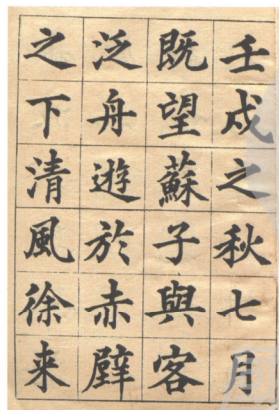 壬戌之秋七月
既望蘇子與客
泛舟遊於赤壁
之下清風徐来